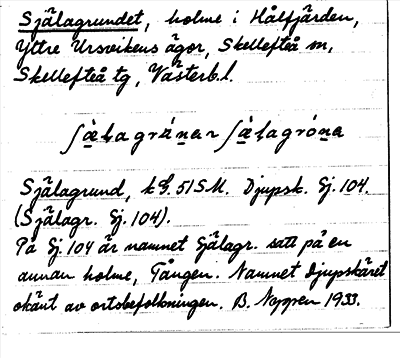 Själagrundet, holme i Hålfjärden,
Yttre Ursvikens ägor, Skellefteå sn,
Skellefteå tg, Västerb.l.
ʃæ̀lagrúnar ʃæ̀lagróna
Själagrund, kf. 51 S.M. Djupsk. Gj. 104.
(Själagr. Gj. 104).
På Gj. 104 är namnet Själagr. satt på en
annan holme, Tången. Namnet Djupskäret
okänt av ortsbefolkningen. B. Nygren 1933.